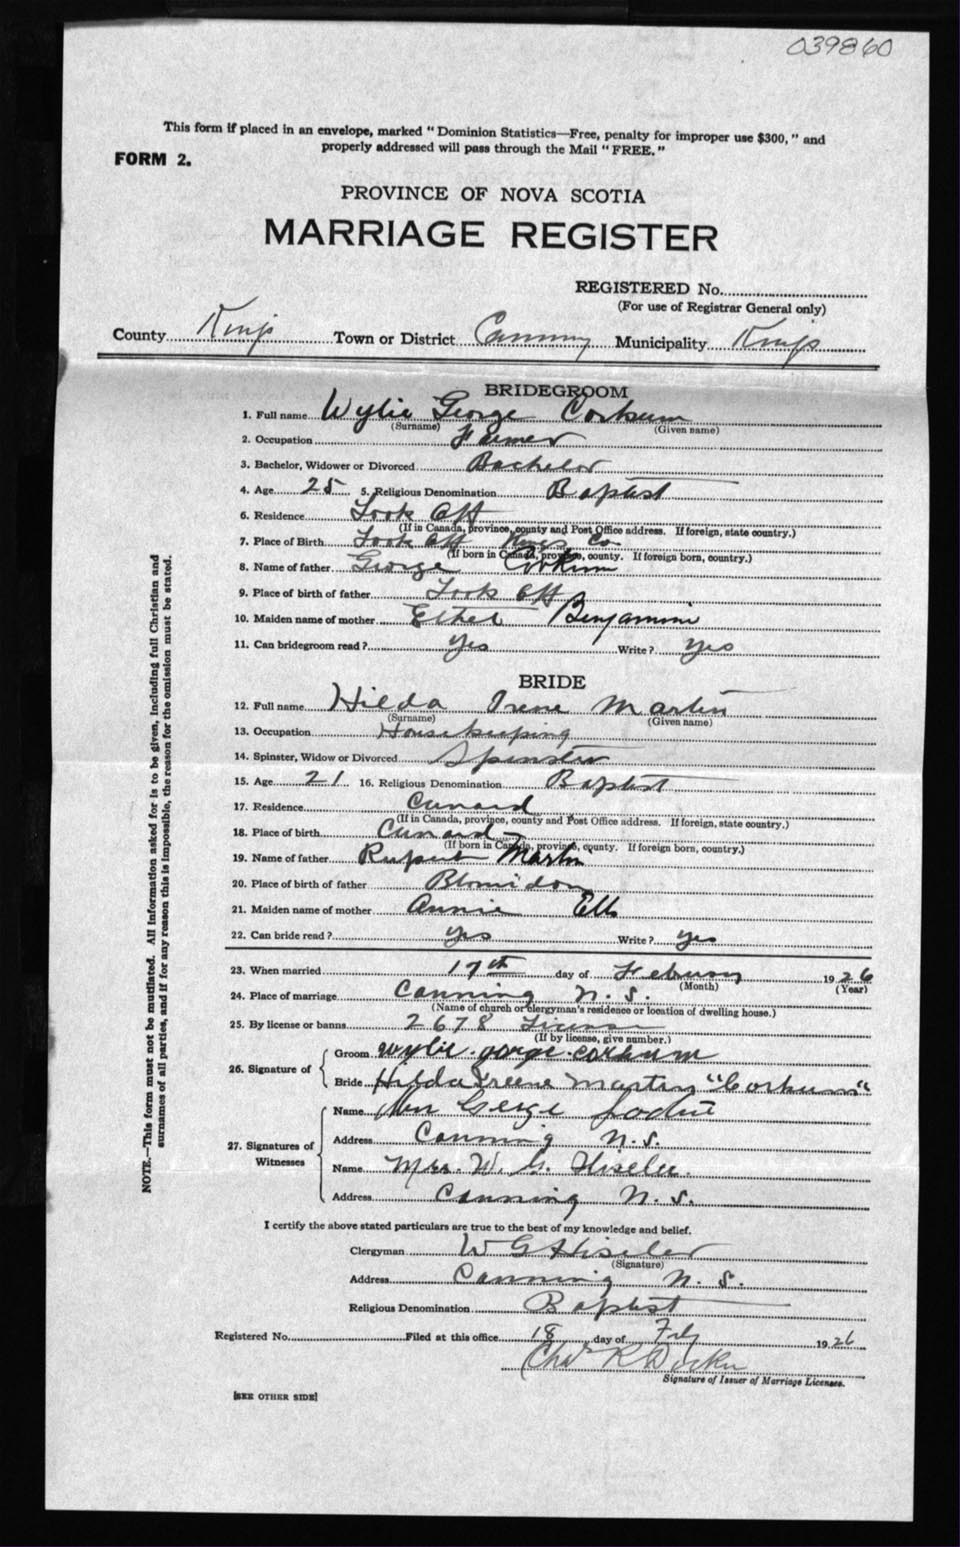 039860
This form if placed in an envelope, marked "Dominion Statistics—Free, penalty for improper use $300," and
properly addressed will pass through the Mail "FREE."
FORM 2.
PROVINCE OF NOVA SCOTIA
MARRIAGE REGISTER
REGISTERED No.
(For use of Registrar General only)
County Kings Town or District Canning Municipality Kings
BRIDEGROOM
1. Full name Wylie George Corkum
(Surname) (Given name)
2. Occupation Farmer
3. Bachelor, Widower or Divorced Bachelor
4. Age 25 5. Religious Denomination Baptist
6. Residence Look Off
(If in Canada, province, county and Post Office address. If foreign, state country.)
7. Place of Birth Look Off Kings Co
(If born in Canada, province, county. If foreign born, country.)
8. Name of father George Corkum
9. Place of birth of father Look Off
10. Maiden name of mother Ethel Benjamin
11. Can bridegroom read? Yes Write? Yes
BRIDE
12. Full name Hilda Irene Martin
(Surname) (Given name)
13. Occupation Housekeeping
14. Spinster, Widow or Divorced Spinster
15. Age 21 16. Religious Denomination Baptist
17. Residence Cunard
(If in Canada, province, county and Post Office address. If foreign, state country.)
18. Place of birth Cunard
(If born in Canada, province, county. If foreign born, country.)
19. Name of father Rupert Martin
20. Place of birth of father Blomidon
21. Maiden name of mother Annie Ells
22. Can bride read? Yes Write? Yes
23. When married 17th day of February 1926
(Month) (Year)
24. Place of marriage Canning N. S.
(Name of church or clergyman's residence or location of dwelling house.)
25. By license or banns 2678 License
(If by license, give number.)
26. Signature of
Groom Wylie George Corkum
Bride Hilda Ireene Martin "Corkum"
27. Signatures of Witnesses
Name George
Address Canning N. S.
Name Mrs. W. G. Hiseler
Address Canning N. S.
I certify the above stated particulars are true to the best of my knowledge and belief.
Clergyman W G Hiseler
(Signature)
Address Canning N. S.
Religious Denomination Baptist
Registered No. Filed at this office 18 day of Feb 1926
Chas R
Signature of Issuer of Marriage Licenses.
[SEE OTHER SIDE]
NOTE.—This form must not be mutilated. All information asked for is to be given, including full Christian and
surnames of all parties, and if for any reason this is impossible, the reason for the omission must be stated.